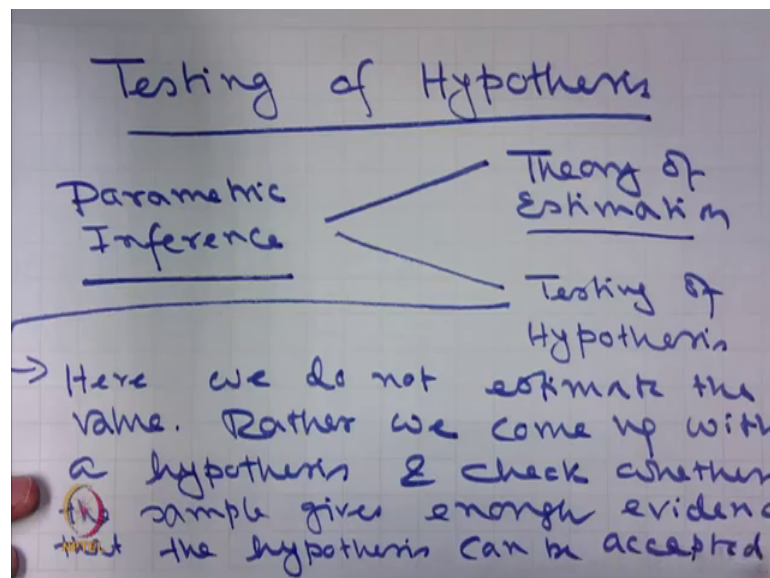 Testing of Hypothesis
Parametric
Inference
Theory of
Estimation
Testing of
Hypothesis
→ Here we do not estimate the
value. Rather we come up with
a hypothesis & check whether
the sample gives enough evidenc
that the hypothesis can be accepted
NPTEL